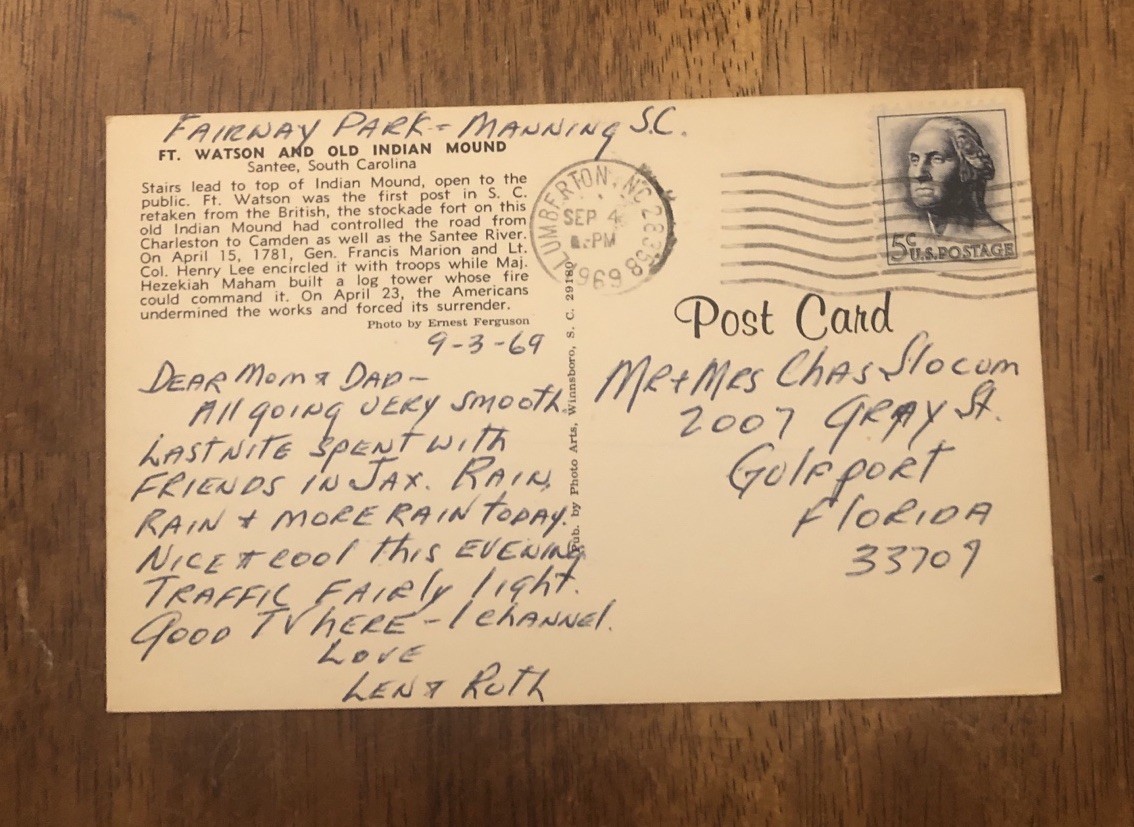 FAIRWAY PARK - MANNING S.C.
FT. WATSON AND OLD INDIAN MOUND
Santee, South Carolina
Stairs lead to top of Indian Mound, open to the
public. Ft. Watson was the first post in S. C.
retaken from the British, the stockade fort on this
old Indian Mound had controlled the road from
Charleston to Camden as well as the Santee River.
On April 15, 1781, Gen. Francis Marion and Lt.
Col. Henry Lee encircled it with troops while Maj.
Hezekiah Maham built a log tower whose fire
could command it. On April 23, the Americans
undermined the works and forced its surrender.
Photo by Ernest Ferguson
9-3-69
DEAR MOM & DAD -
All going VERY smooth.
LAST NITE SPENT WITH
FRIENDS IN JAX. RAIN,
RAIN & MORE RAIN TODAY.
NICE & cool this EVENING
TRAFFIC FAIRly light.
GOOD TV hERE - 1 channel.
LOVE
LEN & RUTH
Pub. by Photo Arts, Winnsboro, S. C. 29180
LUMBERTON, NC 28358
SEP 4
PM
1969
5c U.S. POSTAGE
Post Card
MR + MRS CHAS Slocum
2007 GRAY St.
GulfPORT
FlORIDA
33707